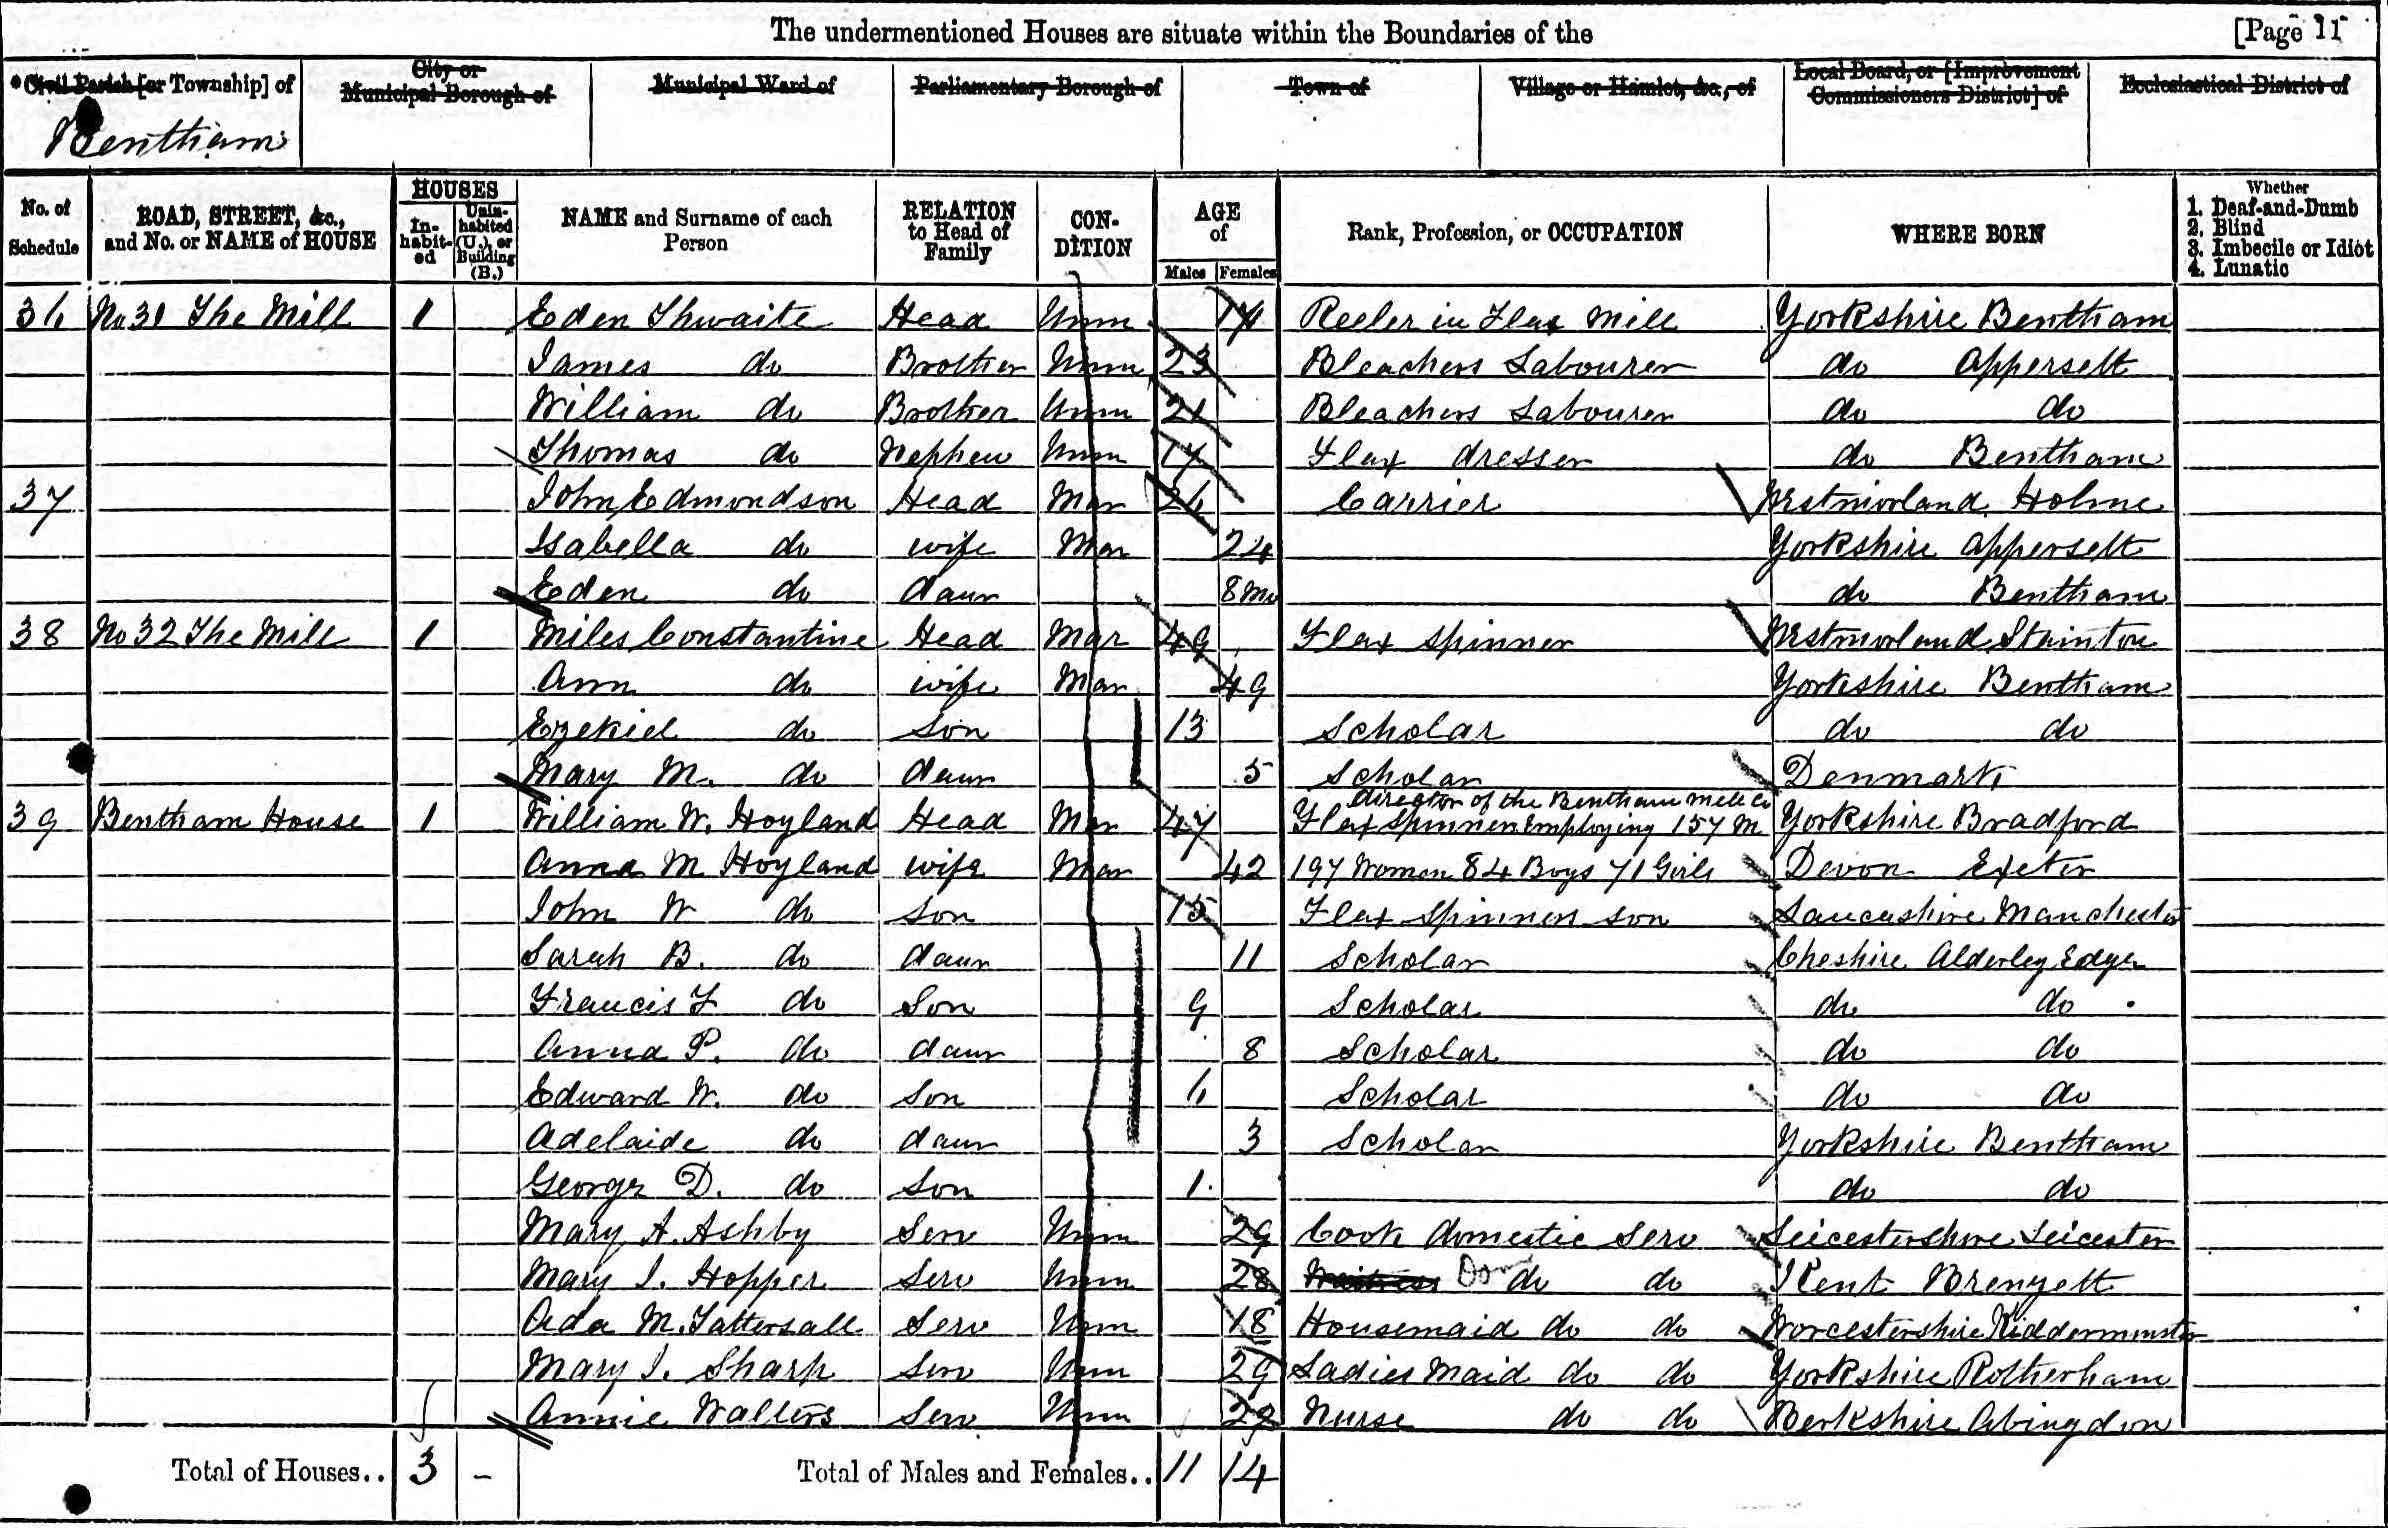 The undermentioned Houses are situate within the Boundaries of the [Page 11
*Civil Parish [or Township] of City or Municipal Borough of Municipal Ward of Parliamentary Borough of Town of Village or Hamlet, &c., of Local Board, or [Improvement Commissioners District] of Ecclesiastical District of
Bentham
No. of Schedule ROAD, STREET, &c., and No. or NAME of HOUSE HOUSES In-habit-ed Unin-habited (U.), or Building (B.) NAME and Surname of each Person RELATION to Head of Family CON-DITION AGE of Males Females Rank, Profession, or OCCUPATION WHERE BORN Whether 1. Deaf-and-Dumb 2. Blind 3. Imbecile or Idiot 4. Lunatic
36 No 31 The Mill 1 Eden Thwaite Head Unm Reeler in Flax Mill Yorkshire Bentham
James do Brother Unm 23 Bleachers Labourer do Appersett
William do Brother Unm 21 Bleachers Labourer do do
Thomas do Nephew Unm 14 Flax dresser do Bentham
37 John Edmondson Head Mar 26 Carrier Westmorland Holme
Isabella do wife Mar 24 Yorkshire Appersett
Eden do daur 8 Mo do Bentham
38 No 32 The Mill 1 Miles Constantine Head Mar 49 Flax Spinner Westmorland Stainton
Ann do wife Mar 49 Yorkshire Bentham
Ezekiel do Son 13 Scholar do do
Mary M. do daur 5 Scholar Denmark
39 Bentham House 1 William W. Hoyland Head Mar 47 director of the Bentham Mill Co Flax Spinner Employing 157 M Yorkshire Bradford
Anna M Hoyland wife Mar 42 197 Women 84 Boys 71 Girls Devon Exeter
John W do Son 15 Flax Spinners Son Lancashire Manchester
Sarah B. do daur 11 Scholar Cheshire Alderley Edge
Francis F do Son 9 Scholar do do
Anna P. do daur 8 Scholar do do
Edward W. do Son 6 Scholar do do
Adelaide do daur 3 Scholar Yorkshire Bentham
George D. do Son 1 do do
Mary A. Ashby Serv Unm 29 Cook domestic Serv Leicestershire Leicester
Mary J. Hopper Serv Unm 28 Waitress Dom do do Kent Brenzett
Ada M. Tattersall Serv Unm 18 Housemaid do do Worcestershire Kidderminster
Mary J. Sharp Serv Unm 29 Ladies Maid do do Yorkshire Rotherham
Annie Walters Serv Unm Nurse do do Berkshire Abingdon
Total of Houses.. 3 – Total of Males and Females.. 11 14